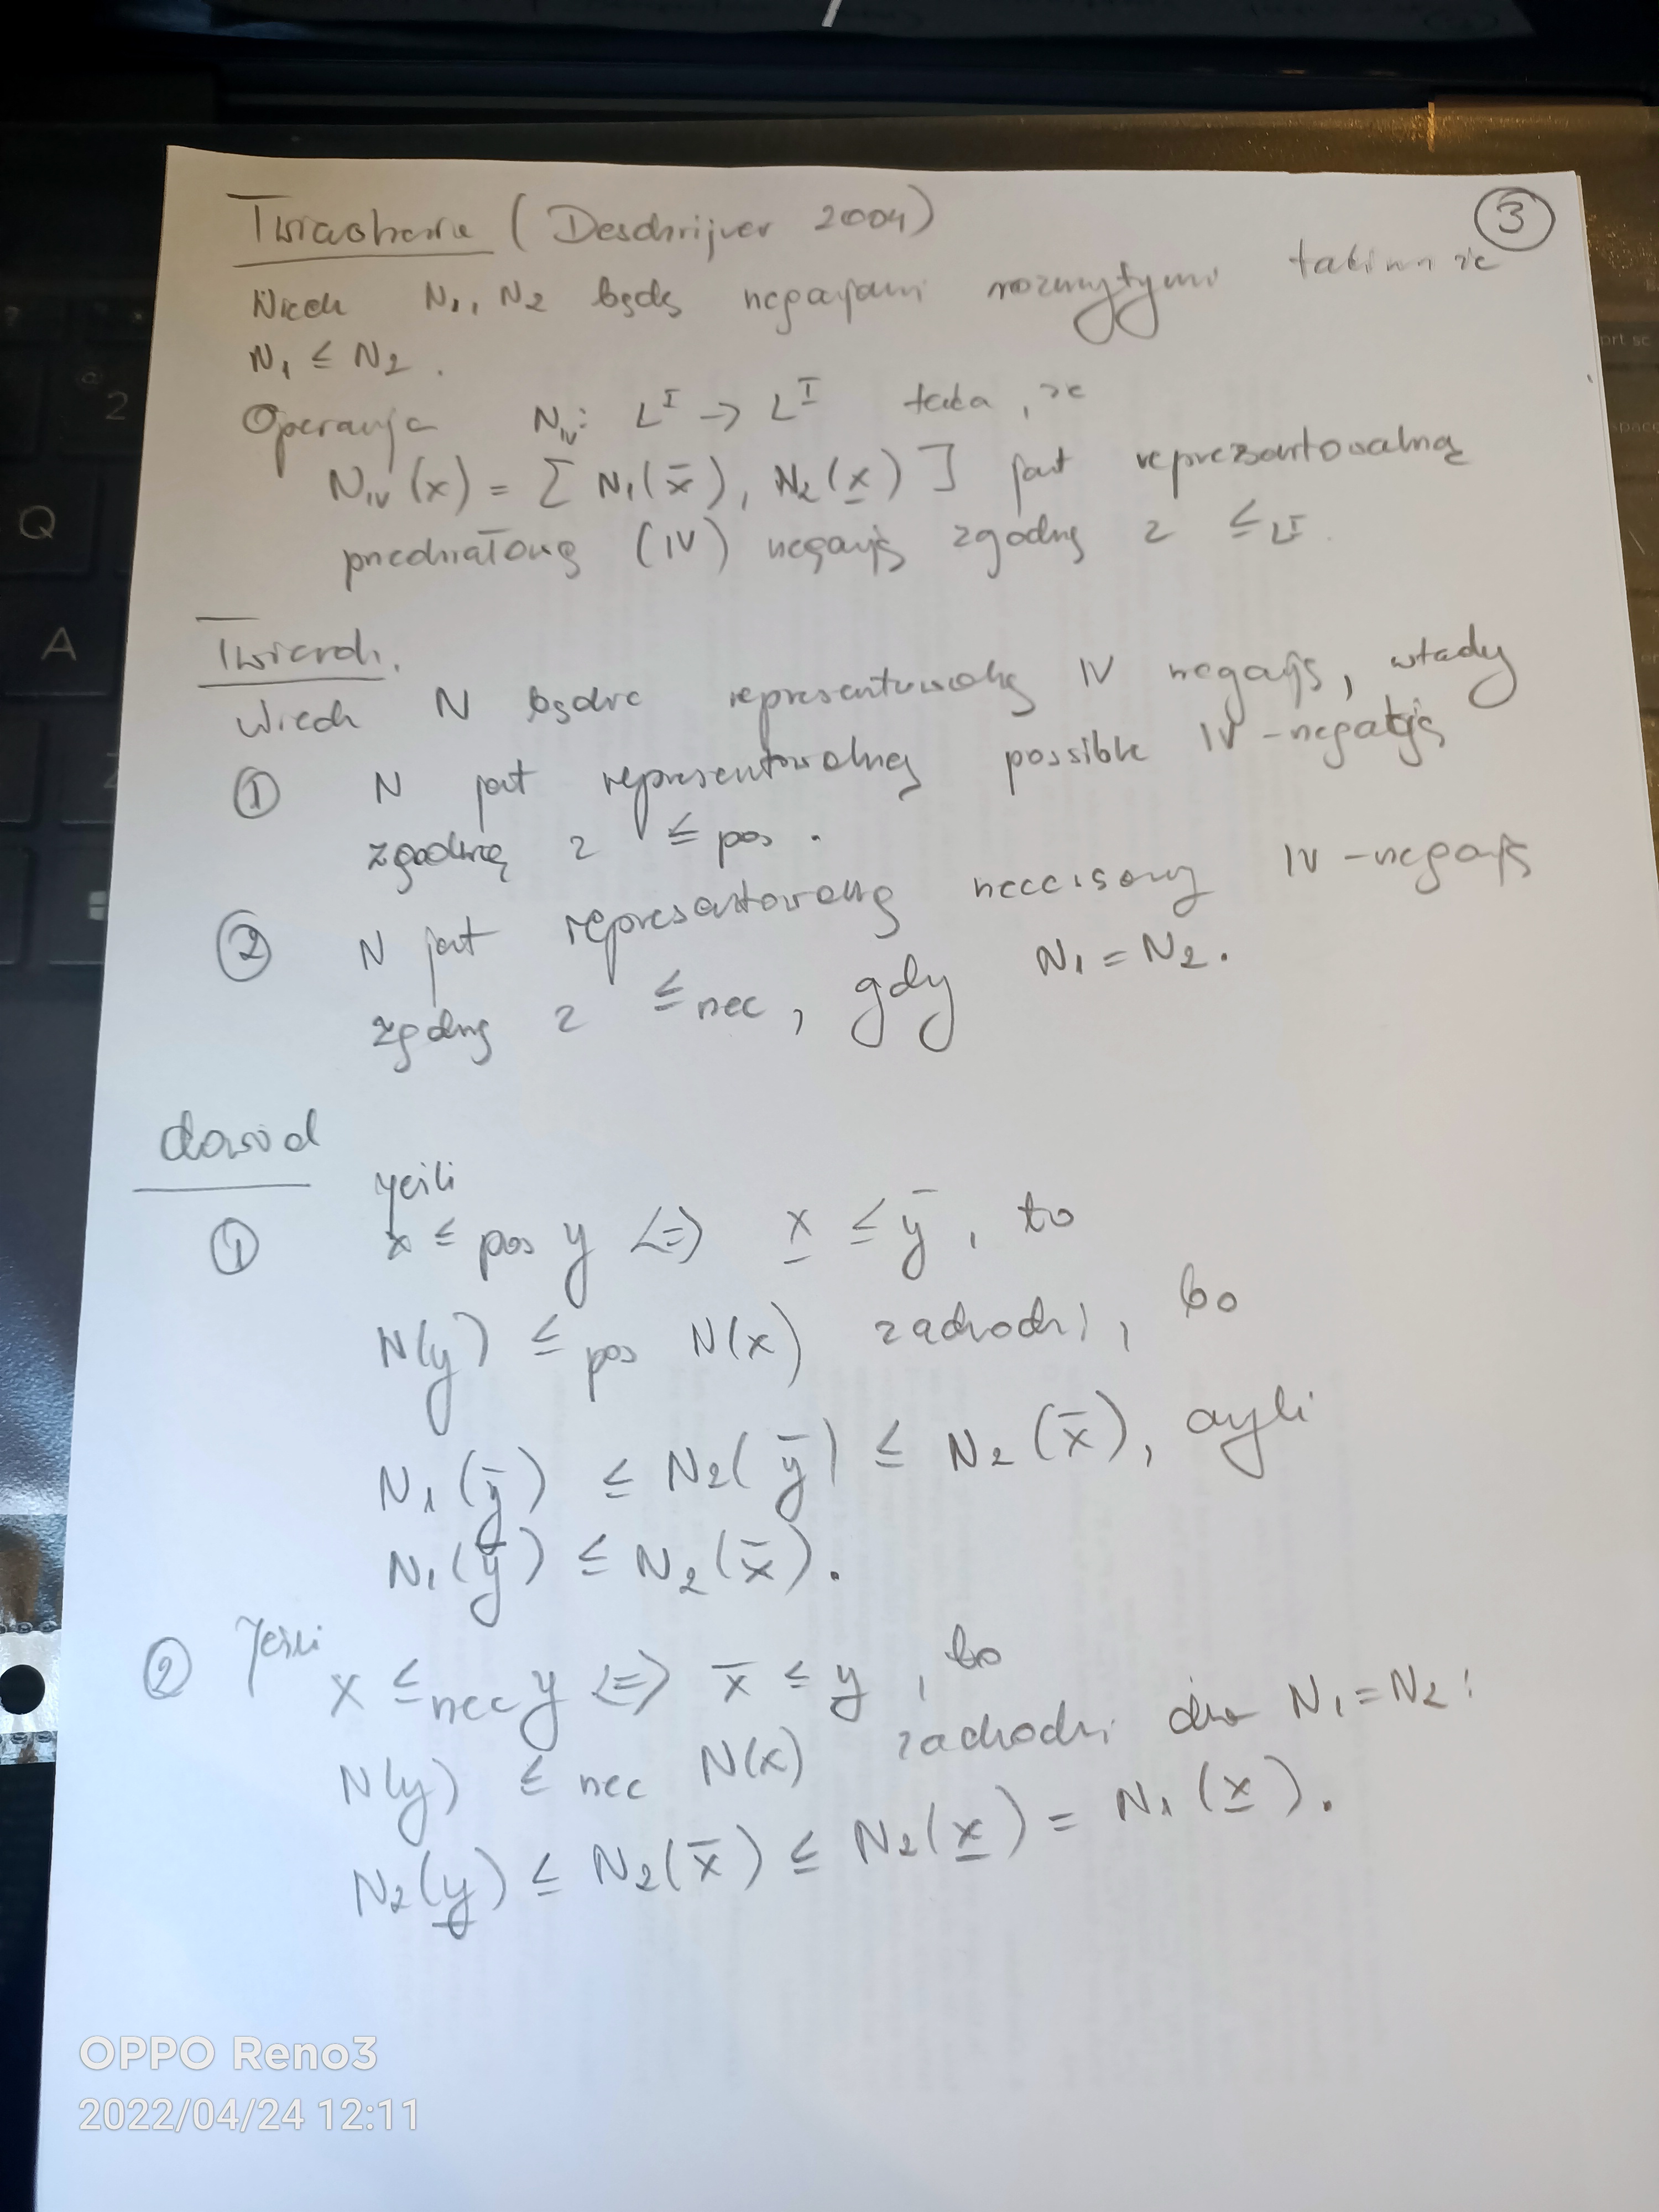 ③
Twierdzenie (Deschrijver 2004)
Niech N₁, N₂ będą negacjami rozmytymi takimi że
N₁ ≤ N₂.
Operacja N_IV: L^I → L^I taka, że
N_IV(x) = [N₁(x̅), N₂(x̲)] jest reprezentowalną
przedziałową (IV) negacją zgodną z ≤_L^I.
Twierdz.
Niech N będzie reprezentowalną IV negacją, wtedy
① N jest reprezentowalną possible IV-negacją
zgodną z ≤ pos.
② N jest reprezentowalną neccisary IV-negacją
zgodną z ≤ nec, gdy N₁ = N₂.
dowód
jeśli
① x ≤ pos y <=> x̲ ≤ y̅, to
N(y) ≤ pos N(x) zachodzi, bo
N₁(y̅) ≤ N₂(y̅) ≤ N₂(x̅), czyli
N₁(y̅) ≤ N₂(x̅).
② Jeśli
x ≤ nec y <=> x̅ ≤ y, to
N(y) ≤ nec N(x) zachodzi dla N₁ = N₂:
N₂(y̲) ≤ N₂(x̅) ≤ N₂(x̲) = N₁(x̲).
OPPO Reno3
2022/04/24 12:11
2
Q
A